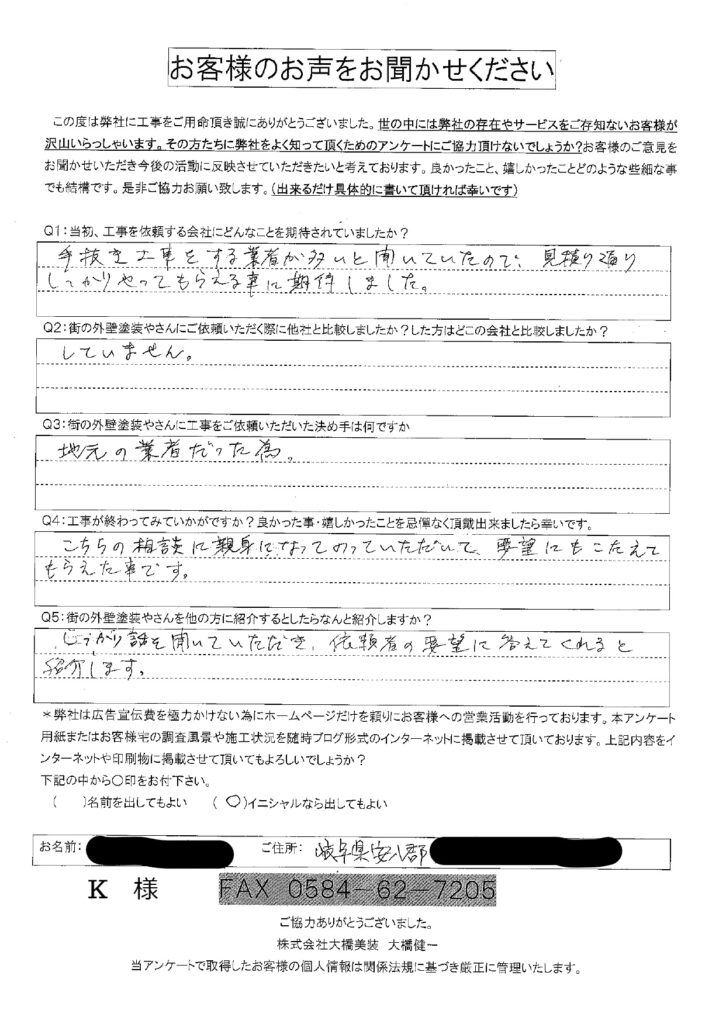 お客様のお声をお聞かせください
この度は弊社に工事をご用命頂き誠にありがとうございました。世の中には弊社の存在やサービスをご存知ないお客様が
沢山いらっしゃいます。その方たちに弊社をよく知って頂くためのアンケートにご協力頂けないでしょうか?お客様のご意見を
お聞かせいただき今後の活動に反映させていただきたいと考えております。良かったこと、嬉しかったことどのような些細な事
でも結構です。是非ご協力お願い致します。(出来るだけ具体的に書いて頂ければ幸いです)
Q1:当初、工事を依頼する会社にどんなことを期待されていましたか?
手抜き工事をする業者が多いと聞いていたので、見積り通り
しっかりやってもらえる事に期待しました。
Q2:街の外壁塗装やさんにご依頼いただく際に他社と比較しましたか?した方はどこの会社と比較しましたか?
していません。
Q3:街の外壁塗装やさんに工事をご依頼いただいた決め手は何ですか
地元の業者だった為。
Q4:工事が終わってみていかがですか?良かった事・嬉しかったことを忌憚なく頂戴出来ましたら幸いです。
こちらの相談に親身になってのっていただいて、要望にもこたえて
もらえた事です。
Q5:街の外壁塗装やさんを他の方に紹介するとしたらなんと紹介しますか?
しっかり話を聞いていただき、依頼者の要望に答えてくれると
紹介します。
*弊社は広告宣伝費を極力かけない為にホームページだけを頼りにお客様への営業活動を行っております。本アンケート
用紙またはお客様宅の調査風景や施工状況を随時ブログ形式のインターネットに掲載させて頂いております。上記内容をイ
ンターネットや印刷物に掲載させて頂いてもよろしいでしょうか?
下記の中から○印をお付下さい。
(　)名前を出してもよい　(○)イニシャルなら出してもよい
お名前:　ご住所: 岐阜県安八郡
K 様　FAX 0584-62-7205
ご協力ありがとうございました。
株式会社大橋美装 大橋健一
当アンケートで取得したお客様の個人情報は関係法規に基づき厳正に管理いたします。